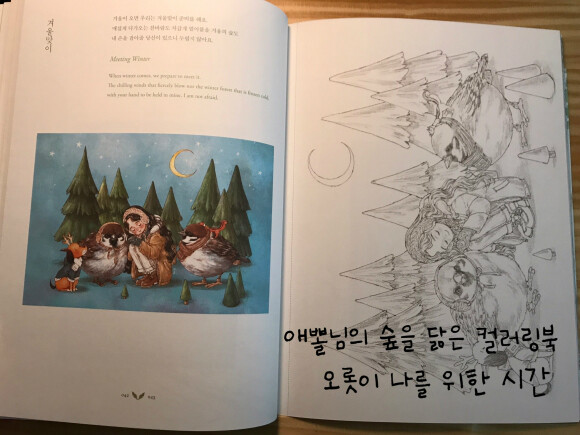 겨울맞이
겨울이 오면 우리는 겨울맞이 준비를 해요.
매섭게 다가오는 찬바람도 차갑게 얼어붙을 겨울의 숲도
내 손을 잡아줄 당신이 있으니 두렵지 않아요.
Meeting Winter
When winter comes, we prepare to meet it.
The chilling winds that fiercely blow nor the winter forest that is frozen cold,
with your hand to be held in mine, I am not afraid.
애뽈님의 숲을 닮은 컬러링북
오롯이 나를 위한 시간